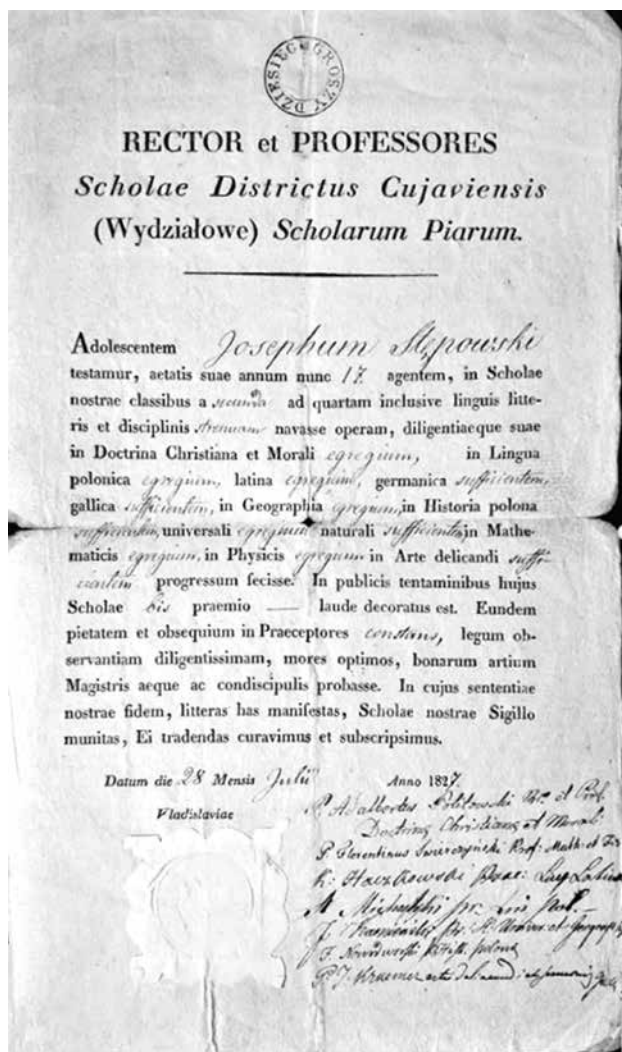 DZIESIĘC GROSZY
RECTOR et PROFESSORES
Scholae Districtus Cujaviensis
(Wydziałowe) Scholarum Piarum.
Adolescentem Josephum Stępowski
testamur, aetatis suae annum nunc 17 agentem, in Scholae
nostrae classibus a secunda ad quartam inclusive linguis litte-
ris et disciplinis strenuam navasse operam, diligentiaeque suae
in Doctrina Christiana et Morali egregium, in Lingua
polonica egregium, latina egregium, germanica sufficientem,
gallica sufficientem, in Geographia egregium, in Historia polona
sufficientem, universali egregium naturali sufficientem in Mathe-
maticis egregium, in Physicis egregium in Arte delicandi suffi
cientem progressum fecisse. In publicis tentaminibus hujus
Scholae bis praemio — laude decoratus est. Eundem
pietatem et obsequium in Praeceptores constans, legum ob-
servantiam diligentissimam, mores optimos, bonarum artium
Magistris aeque ac condiscipulis probasse. In cujus sententiae
nostrae fidem, litteras has manifestas, Scholae nostrae Sigillo
munitas, Ei tradendas curavimus et subscripsimus.
Datum die 28 Mensis Julii Anno 1827.
Vladislaviae
P. Adalbertus et Prof.
Doctrinę Christianę et Moral:
P. Florentinus Swierczyński Prof: Math: et
K: Prof: Lat
M
J. et
F. polonę
P. J. Kraemer